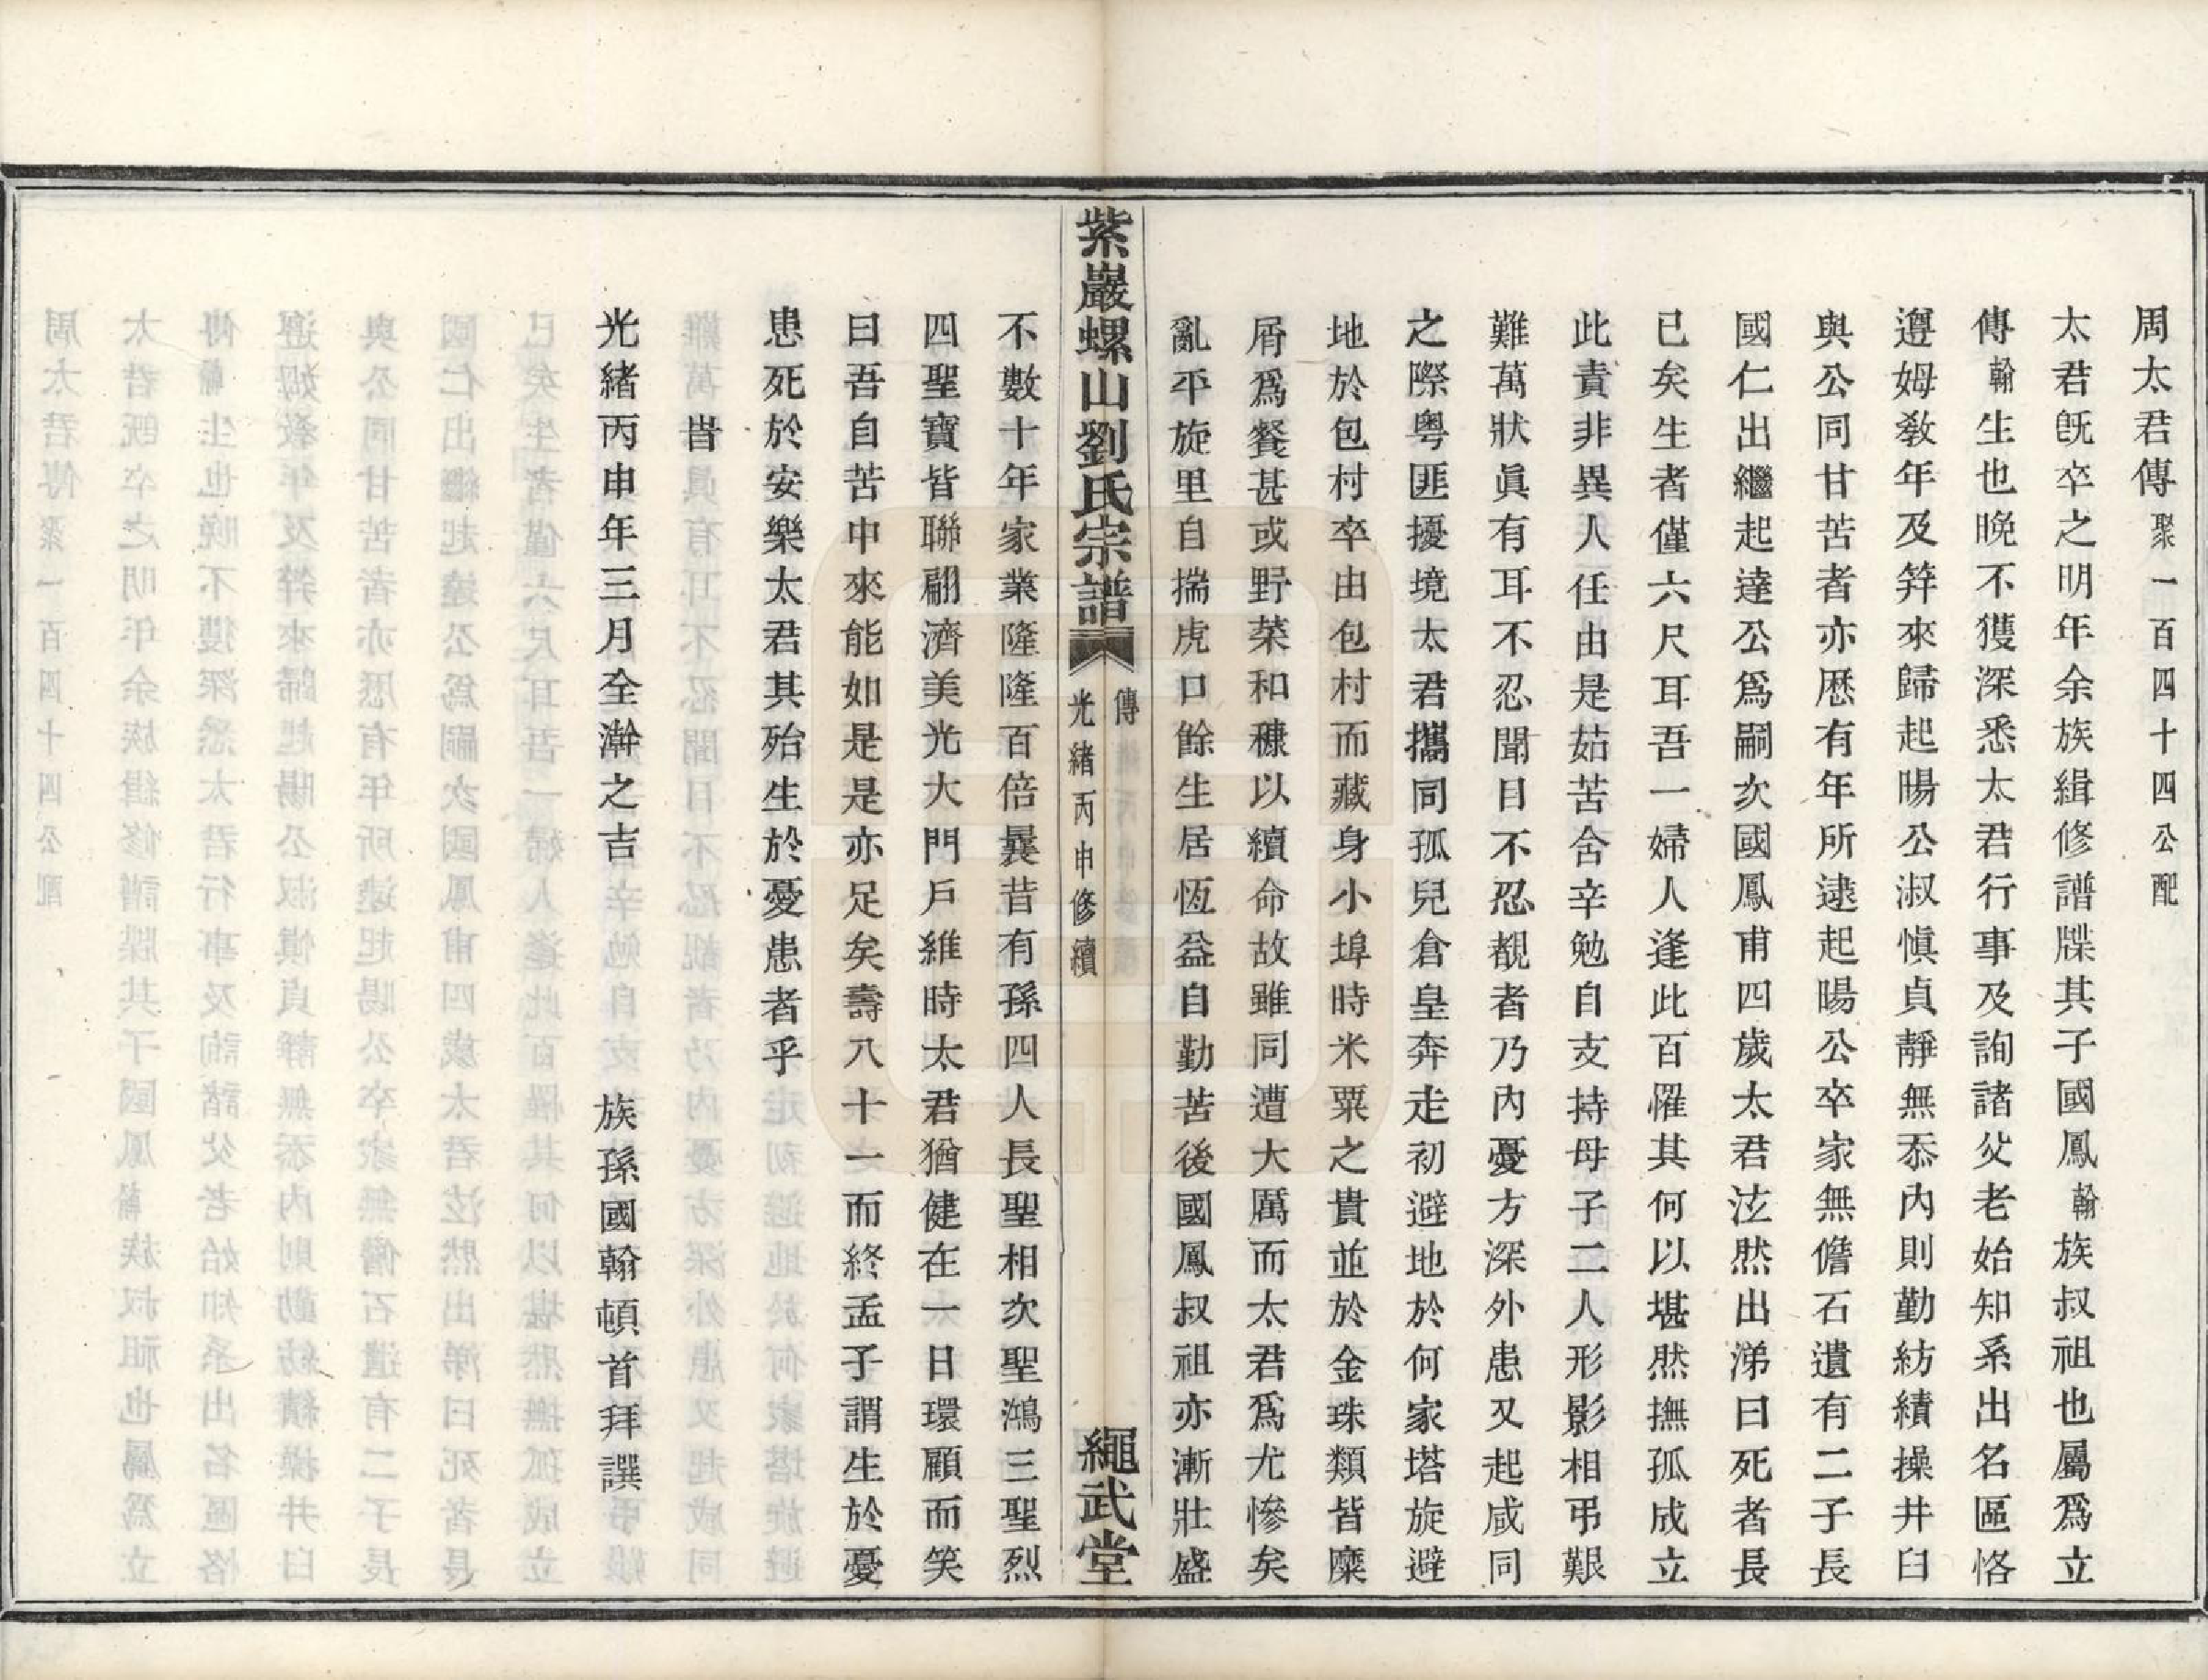 周太君傳聚一百四十四公配
太君旣卒之明年余族緝修譜牒其子國鳳翰族叔祖也屬爲立
傳翰生也晚不獲深悉太君行事及詢諸父老始知系出名區恪
遵姆敎年及筓來歸起暘公淑愼貞靜無忝內則勤紡績操井臼
與公同甘苦者亦歷有年所逮起暘公卒家無儋石遺有二子長
國仁出繼起達公爲嗣次國鳳甫四歲太君泫然出涕曰死者長
已矣生者僅六尺耳吾一婦人逢此百罹其何以堪然撫孤成立
此責非異人任由是茹苦含辛勉自支持母子二人形影相弔艱
難萬狀眞有耳不忍聞目不忍覩者乃內憂方深外患又起咸同
之際粵匪擾境太君攜同孤兒倉皇奔走初避地於何家塔旋避
地於包村卒由包村而藏身小埠時米粟之貴並於金珠類皆糜
屑爲餐甚或野菜和糠以續命故雖同遭大厲而太君爲尤慘矣
亂平旋里自揣虎口餘生居恆益自勤苦後國鳳叔祖亦漸壯盛
紫巖螺山劉氏宗譜
傳
光緒丙申修續
繩武堂
不數十年家業隆隆百倍曩昔有孫四人長聖相次聖鴻三聖烈
四聖寶皆聯翩濟美光大門戶維時太君猶健在一日環顧而笑
曰吾自苦中來能如是是亦足矣壽八十一而終孟子謂生於憂
患死於安樂太君其殆生於憂患者乎
旹
光緒丙申年三月全澣之吉
族孫國翰頓首拜譔